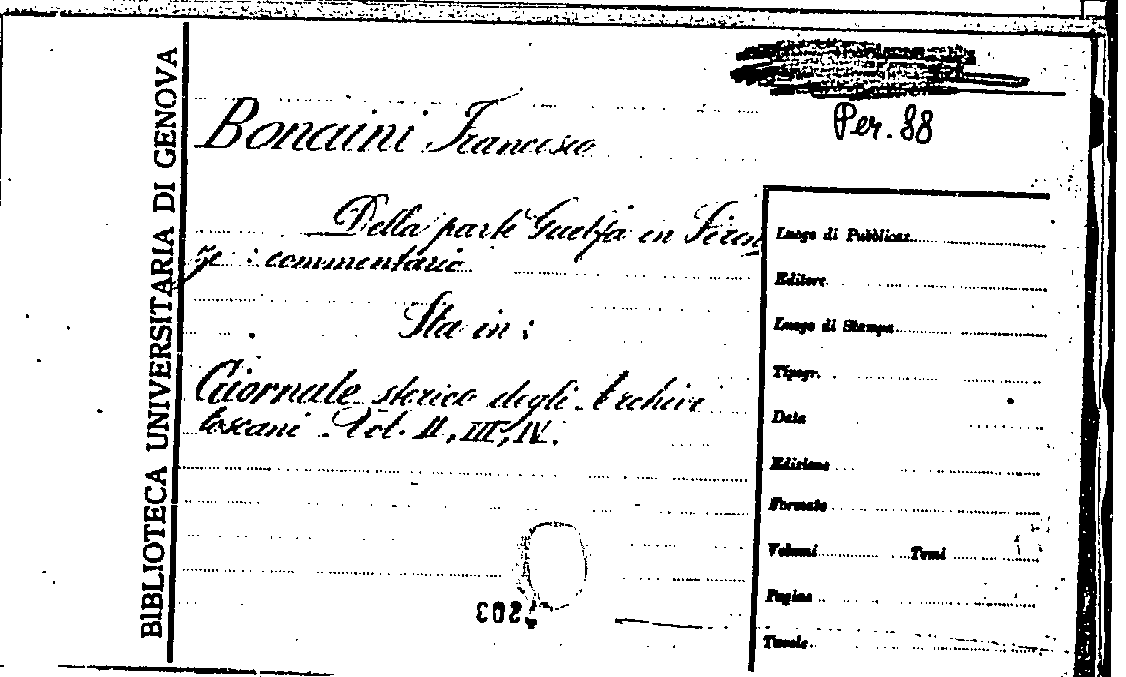 BIBLIOTECA UNIVERSITARIA DI GENOVA
Per. 88
Bonaini Francesco
Della parte Guelfa in Firen
ze : commentario
Sta in :
Giornale storico degli Archivi
toscani Vol. II, III, IV.
Luogo di Pubblicaz.
Editore
Luogo di Stampa
Tipogr.
Data
Edizione
Formato
Volumi Tomi
Pagine
Tavole